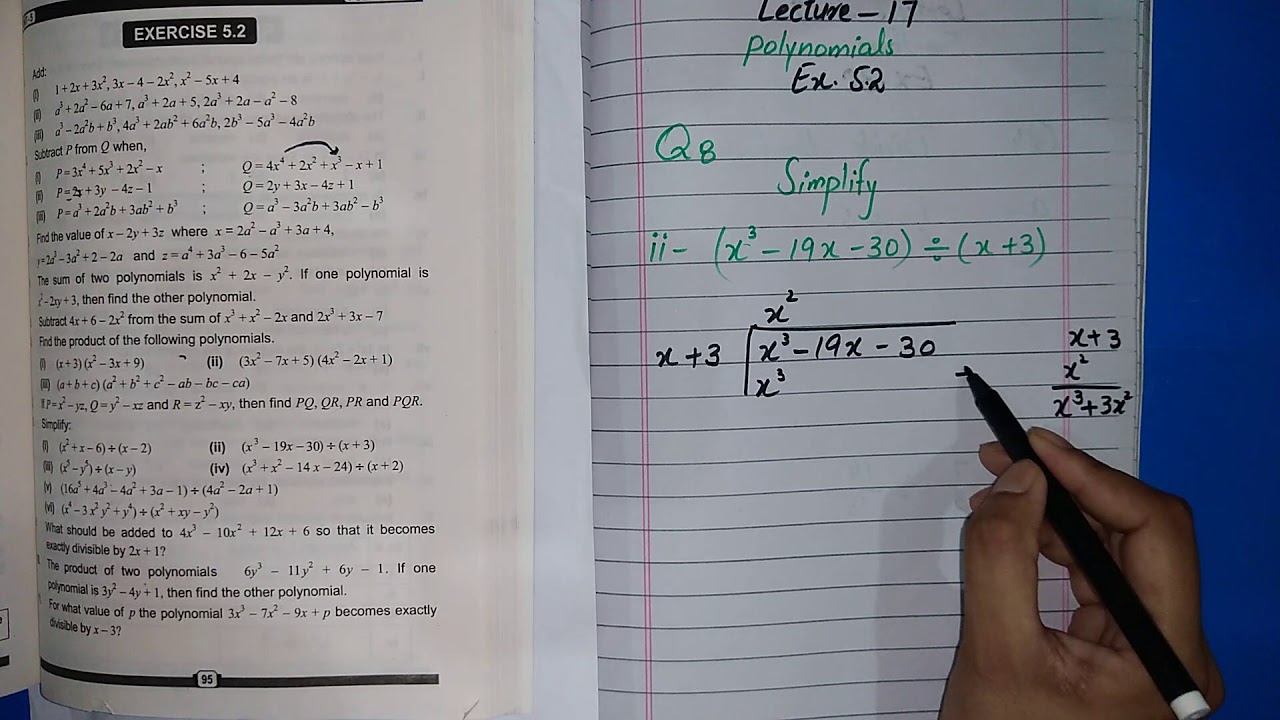 EXERCISE 5.2
Add:
(i) 1+2x+3x², 3x−4−2x², x²−5x+4
(ii) a³+2a²−6a+7, a³+2a+5, 2a³+2a−a²−8
(iii) a³−2a²b+b³, 4a³+2ab²+6a²b, 2b³−5a³−4a²b
Subtract P from Q when,
(i) P=3x⁴+5x³+2x²−x ; Q=4x⁴+2x²+x³−x+1
(ii) P=2x+3y−4z−1 ; Q=2y+3x−4z+1
(iii) P=a³+2a²b+3ab²+b³ ; Q=a³−3a²b+3ab²−b³
Find the value of x−2y+3z where x=2a²−a³+3a+4,
y=2a³−3a²+2−2a and z=a⁴+3a³−6−5a²
The sum of two polynomials is x²+2x−y². If one polynomial is
x²−2xy+3, then find the other polynomial.
Subtract 4x+6−2x² from the sum of x³+x²−2x and 2x³+3x−7
Find the product of the following polynomials.
(i) (x+3)(x²−3x+9) (ii) (3x²−7x+5)(4x²−2x+1)
(iii) (a+b+c)(a²+b²+c²−ab−bc−ca)
If P=x²−yz, Q=y²−xz and R=z²−xy, then find PQ, QR, PR and PQR.
Simplify:
(i) (x²+x−6)÷(x−2) (ii) (x³−19x−30)÷(x+3)
(iii) (x⁵−y⁵)÷(x−y) (iv) (x³+x²−14x−24)÷(x+2)
(v) (16a⁵+4a³−4a²+3a−1)÷(4a²−2a+1)
(vi) (x⁴−3x²y²+y⁴)÷(x²+xy−y²)
What should be added to 4x³−10x²+12x+6 so that it becomes
exactly divisible by 2x+1?
The product of two polynomials 6y³−11y²+6y−1. If one
polynomial is 3y²−4y+1, then find the other polynomial.
For what value of p the polynomial 3x³−7x²−9x+p becomes exactly
divisible by x−3?
95
Lecture-17
Polynomials
Ex. 5.2
Q8
Simplify
ii- (x³−19x−30)÷(x+3)
x²
x+3 x³−19x−30
x³
x+3
x²
x³+3x²